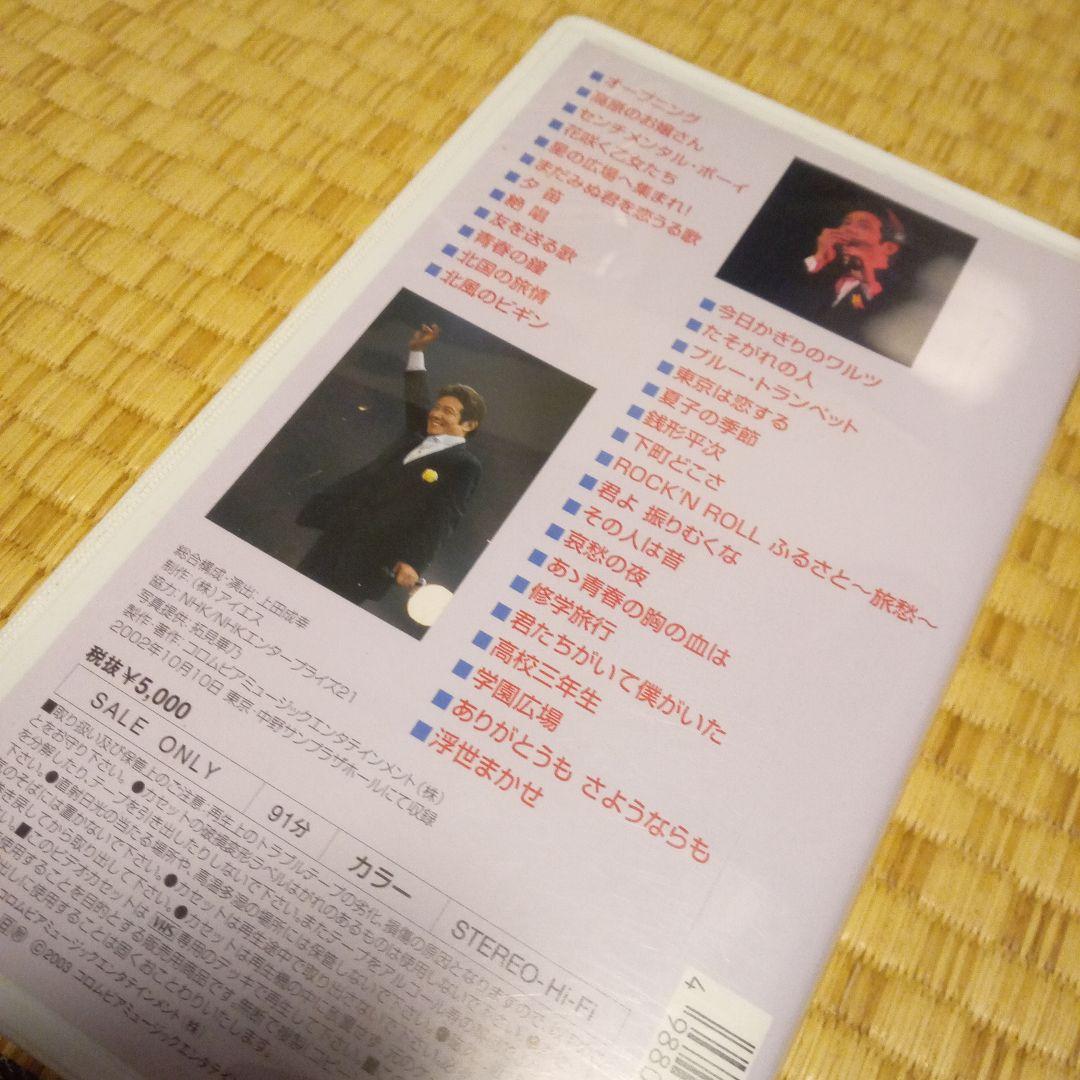 ■オープニング
■高原のお嬢さん
■センチメンタル・ボーイ
■花咲く乙女たち
■星の広場へ集まれ!
■まだみぬ君を恋うる歌
■夕笛
■絶唱
■友を送る歌
■青春の鐘
■北国の旅情
■北風のビギン
■今日かぎりのワルツ
■たそがれの人
■ブルー・トランペット
■東京は恋する
■夏子の季節
■銭形平次
■下町どこさ
■ROCK'N ROLL ふるさと～旅愁～
■君よ 振りむくな
■その人は昔
■哀愁の夜
■あゝ青春の胸の血は
■修学旅行
■君たちがいて僕がいた
■高校三年生
■学園広場
■ありがとうも さようならも
■浮世まかせ
総合構成・演出:上田成幸
制作 (株)アイエス
協力:NHK/NHKエンタープライズ21
写真提供:拓見華乃
製作 著作:コロムビアミュージックエンタテインメント(株)
2002年10月10日 東京・中野サンプラザホールにて収録
税抜¥5,000
SALE ONLY
91分
カラー
STEREO-Hi-Fi
■取り扱い及び保管上のご注意 再生上のトラブルテープの劣化・損傷の原因となりますので、
とをお守り下さい。●カセットの破損変形ラベルはがれのあるものは使用しないで下さい。
を分解したり、テープを引き出したりしないで下さい。またテープをアルコール等の
下さい。●直射日光の当たる場所や、高温多湿の場所には保管しないで下さい。
のそばには置かないで下さい。●カセットは再生途中で取り出さないで下さい。
き戻してから取り出して下さい。●カセットは再生機の中に放置せず
■このビデオカセットは VHS 専用のデッキで再生して下さい。
使用することを目的とする販売用商品です 無断で複製
出しに使用することは固くおことわりいたします。
コロムビアミュージックエンタテインメント 株
©2003 コロムビアミュージックエンタテイン
4 9880